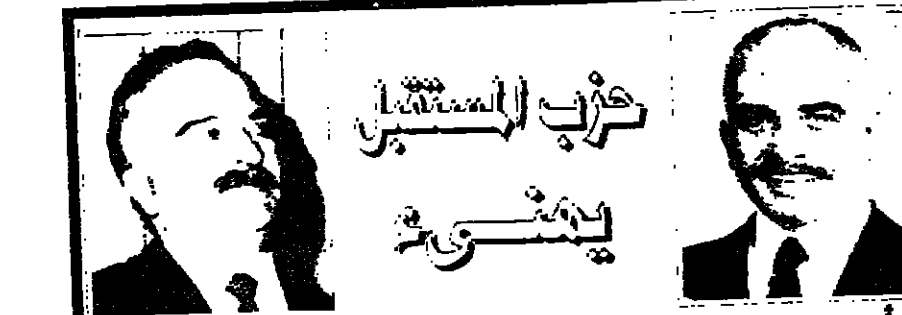 حزب المستقبل
يهنىء